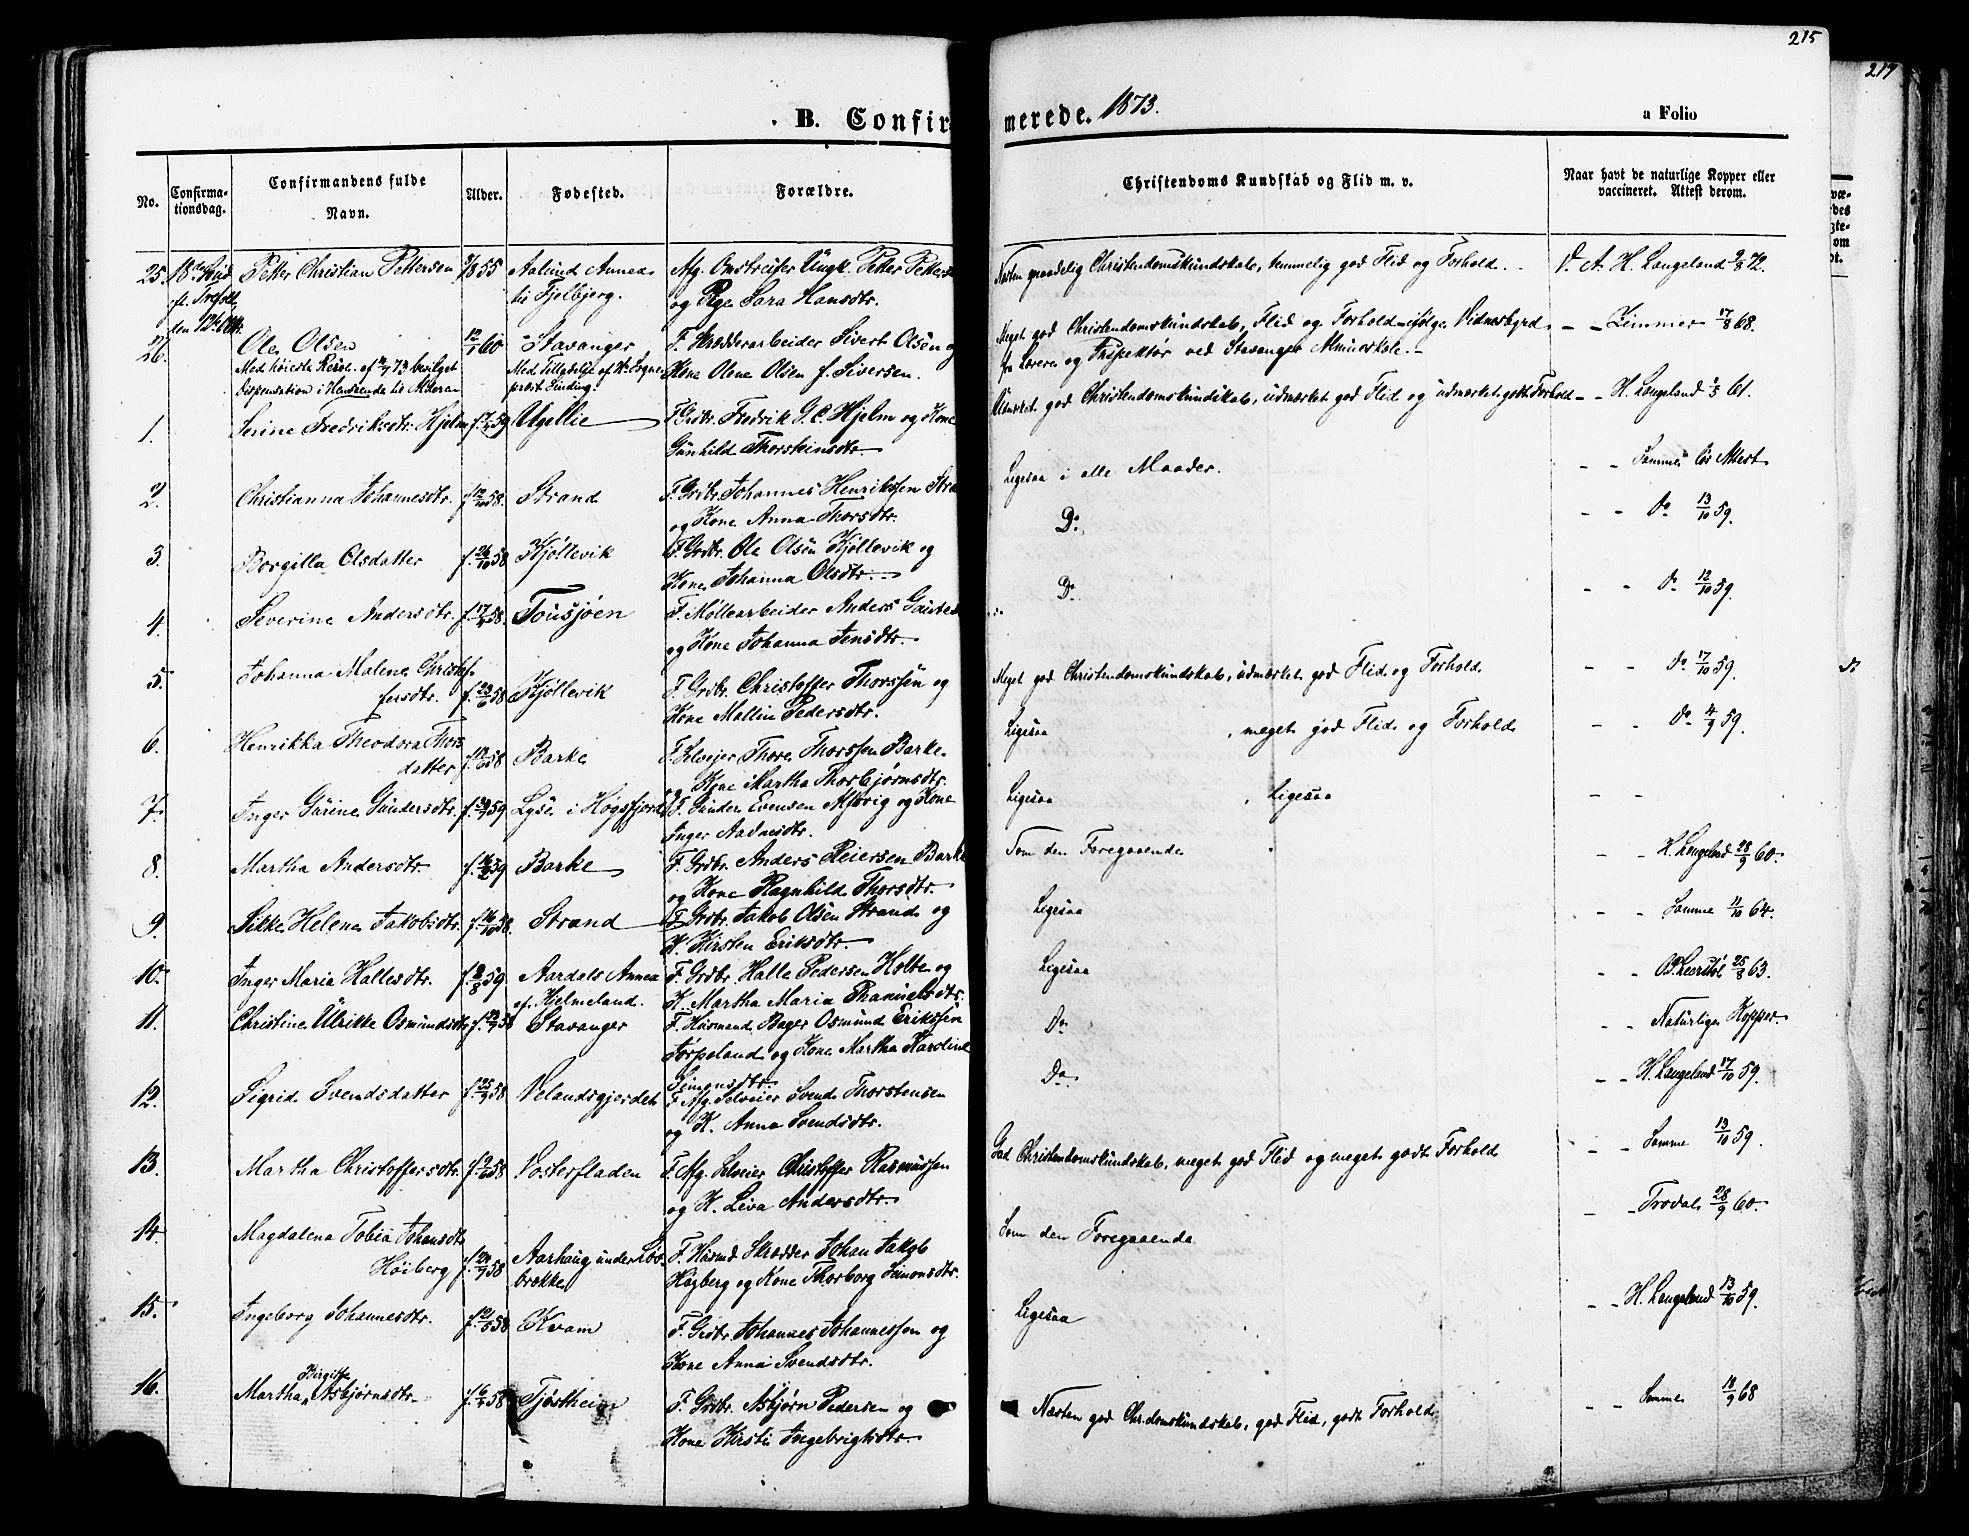 215
217
B. Confirmerede. 1873.
a Folio
No.
Confirma-
tionsdag.
Confirmandens fulde
Navn.
Alder.
Fødested.
Forældre.
Christendoms Kundskab og Flid m. v.
Naar havt de naturlige Kopper eller
vaccineret. Attest derom.
25. 18de Petter Christian Pettersen 1855 Aalund Annex Afg. Omstreifer Ungk. Peter Petters
til Fjelbjerg. og Pige Sara Hansdtr.
Næsten maadelig Christendomskundskab, temmelig god Flid og Forhold. V. A. H. Langeland 72.
26. Ole Olsen 12/1 60 Stavanger F. Skrædderarbeider Sivert Olsen og
Med høieste Resol. af 73 bevilget Med Tilladelse af Sogne
Dispensation i Henseende til Alderen prest Kone Olene Olsen f. Siversen.
Meget god Christendomskundskab, Flid og Forhold ifølge Vidnesbyrd - - Zimmer 17/8 68.
fra Lærer og Inspektør ved Stavanger Almueskole.
1. Serine Fredriksdtr. Hjelm f. 59 F. Grdbr. Fredrik G. C. Hjelm og Kone
Gunhild Thorskinsdtr.
Udmærket god Christendomskundskab, udmærket god Flid og udmærket godt Forhold - - H. Langeland 61.
2. Christianna Johannesdtr. f. 58. Strand F. Grdbr. Johannes Henriksen
og Kone Anna Thorsdtr.
Ligesaa i alle Maader. - - Samme Attest
3. Borgilla Olsdatter f. 26/10 58 Kjøllevik F. Grdbr. Ole Olsen Kjøllevik og
Kone Johanna Olsdtr.
Do - - Do 13/10 59.
4. Severine Andersdtr. f. 58. Tousjøen F. Møllearbeider Anders
og Kone Johanna Jensdtr.
Do - - Do 12/10 59.
5. Johanna Malene Christof-
fersdtr. f. 23/6 58 Kjøllevik F. Grdbr. Christoffer Thorssen og
Kone Mallin Pedersdtr.
Meget god Christendomskundskab, udmærket god Flid og Forhold - - Do 17/10 59.
6. Henrikka Theodora Thors
datter f. 58 Barke F. Selveier Thore Thorssen Barke
og Kone Martha Thorbjørnsdtr.
Ligesaa , meget god Flid og Forhold - - Do 4/9 59.
7. Inger Gurine Gundersdtr. f. 59 Lyse i Høgsfjord F. Gunder Evensen og Kone
Inger Aadnesdtr.
Ligesaa , Ligesaa - -
8. Martha Andersdtr. f. 59 Barke F. Grdbr. Anders Reiersen Barke
og Kone Ragnhild Thorsdtr.
Som den Foregaaende - - H. Langeland 28/9 60.
9. Sikke Helene Jakobsdtr. f. 16/10 58. Strand F. Grdbr. Jakob Olsen Strand og
K. Kirsten Eriksdtr.
Ligesaa - - Samme 11/10 64.
10. Inger Maria Hallesdtr. f. 3/8 59 Aardals Annex F. Grdbr. Halle Pedersen Holte og
af Hjelmeland. K. Martha Maria Thanuelsdtr.
Ligesaa - - 25/8 63.
11. Christine Ulrikke Osmundsdtr f. 58 Stavanger F. Husmand Bager Osmund Eriksen
Jørpeland og Kone Martha Karoline
Simonsdtr.
Do - - Naturlige Kopper.
12. Sigrid Svendsdatter f. 25/9 58 Velandsgjerdet F. Afg. Selveier Svend Thorstensen
og K. Anna Svendsdtr.
Do - - H. Langeland 17/10 59.
13. Martha Christoffersdtr. f. 58 Vosterfladen F. Afg. Selveier Christoffer Rasmussen
og K. Liva Andersdtr.
God Christendomskundskab, meget god Flid og meget godt Forhold - - Samme 13/10 59.
14. Magdalena Tobia Johansdtr
Høiberg f. 58 Aarhaug under F. Husmd Skrædder Johan Jakob
brække Høyberg og Kone Thorborg Simonsdtr.
Som den Foregaaende - - Trodal 28/9 60.
15. Ingeborg Johannesdtr. f. 58 Kvam F. Grdbr. Johannes Johannessen og
Kone Anna Svendsdtr.
Ligesaa - - H. Langeland 13/10 59.
16. Martha Birgitte Asbjørnsdtr. f. 58 Tjøstheim F. Grdbr. Asbjørn Pedersen og
Kone Kirsti Ingebrigtsdtr.
Næsten god Chr.domskundskab, god Flid, godt Forhold - - Samme 18/9 68